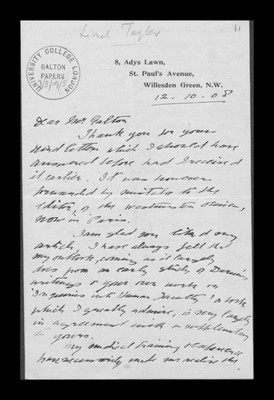 Lind Taylor
11
UNIVERSITY COLLEGE LONDON
GALTON
PAPERS
8, Adys Lawn,
St. Paul's Avenue,
Willesden Green, N.W.
12.10.08
Dear Mr Galton
Thank you for your
kind letter which I should have
answered before had I received
it earlier. It was however
forwarded by mistake to the
Editor of the Westminster Review,
now in Paris.
I am glad you liked my
article, I have always felt that
my outlook, coming as it largely
does from an early study of Darwin's
writings & your own work on
"Inquiries into Human Faculty" a book
which I greatly admire, is very largely
in agreement with &
to yours.
My medical training & experience
have necessarily made me realise the